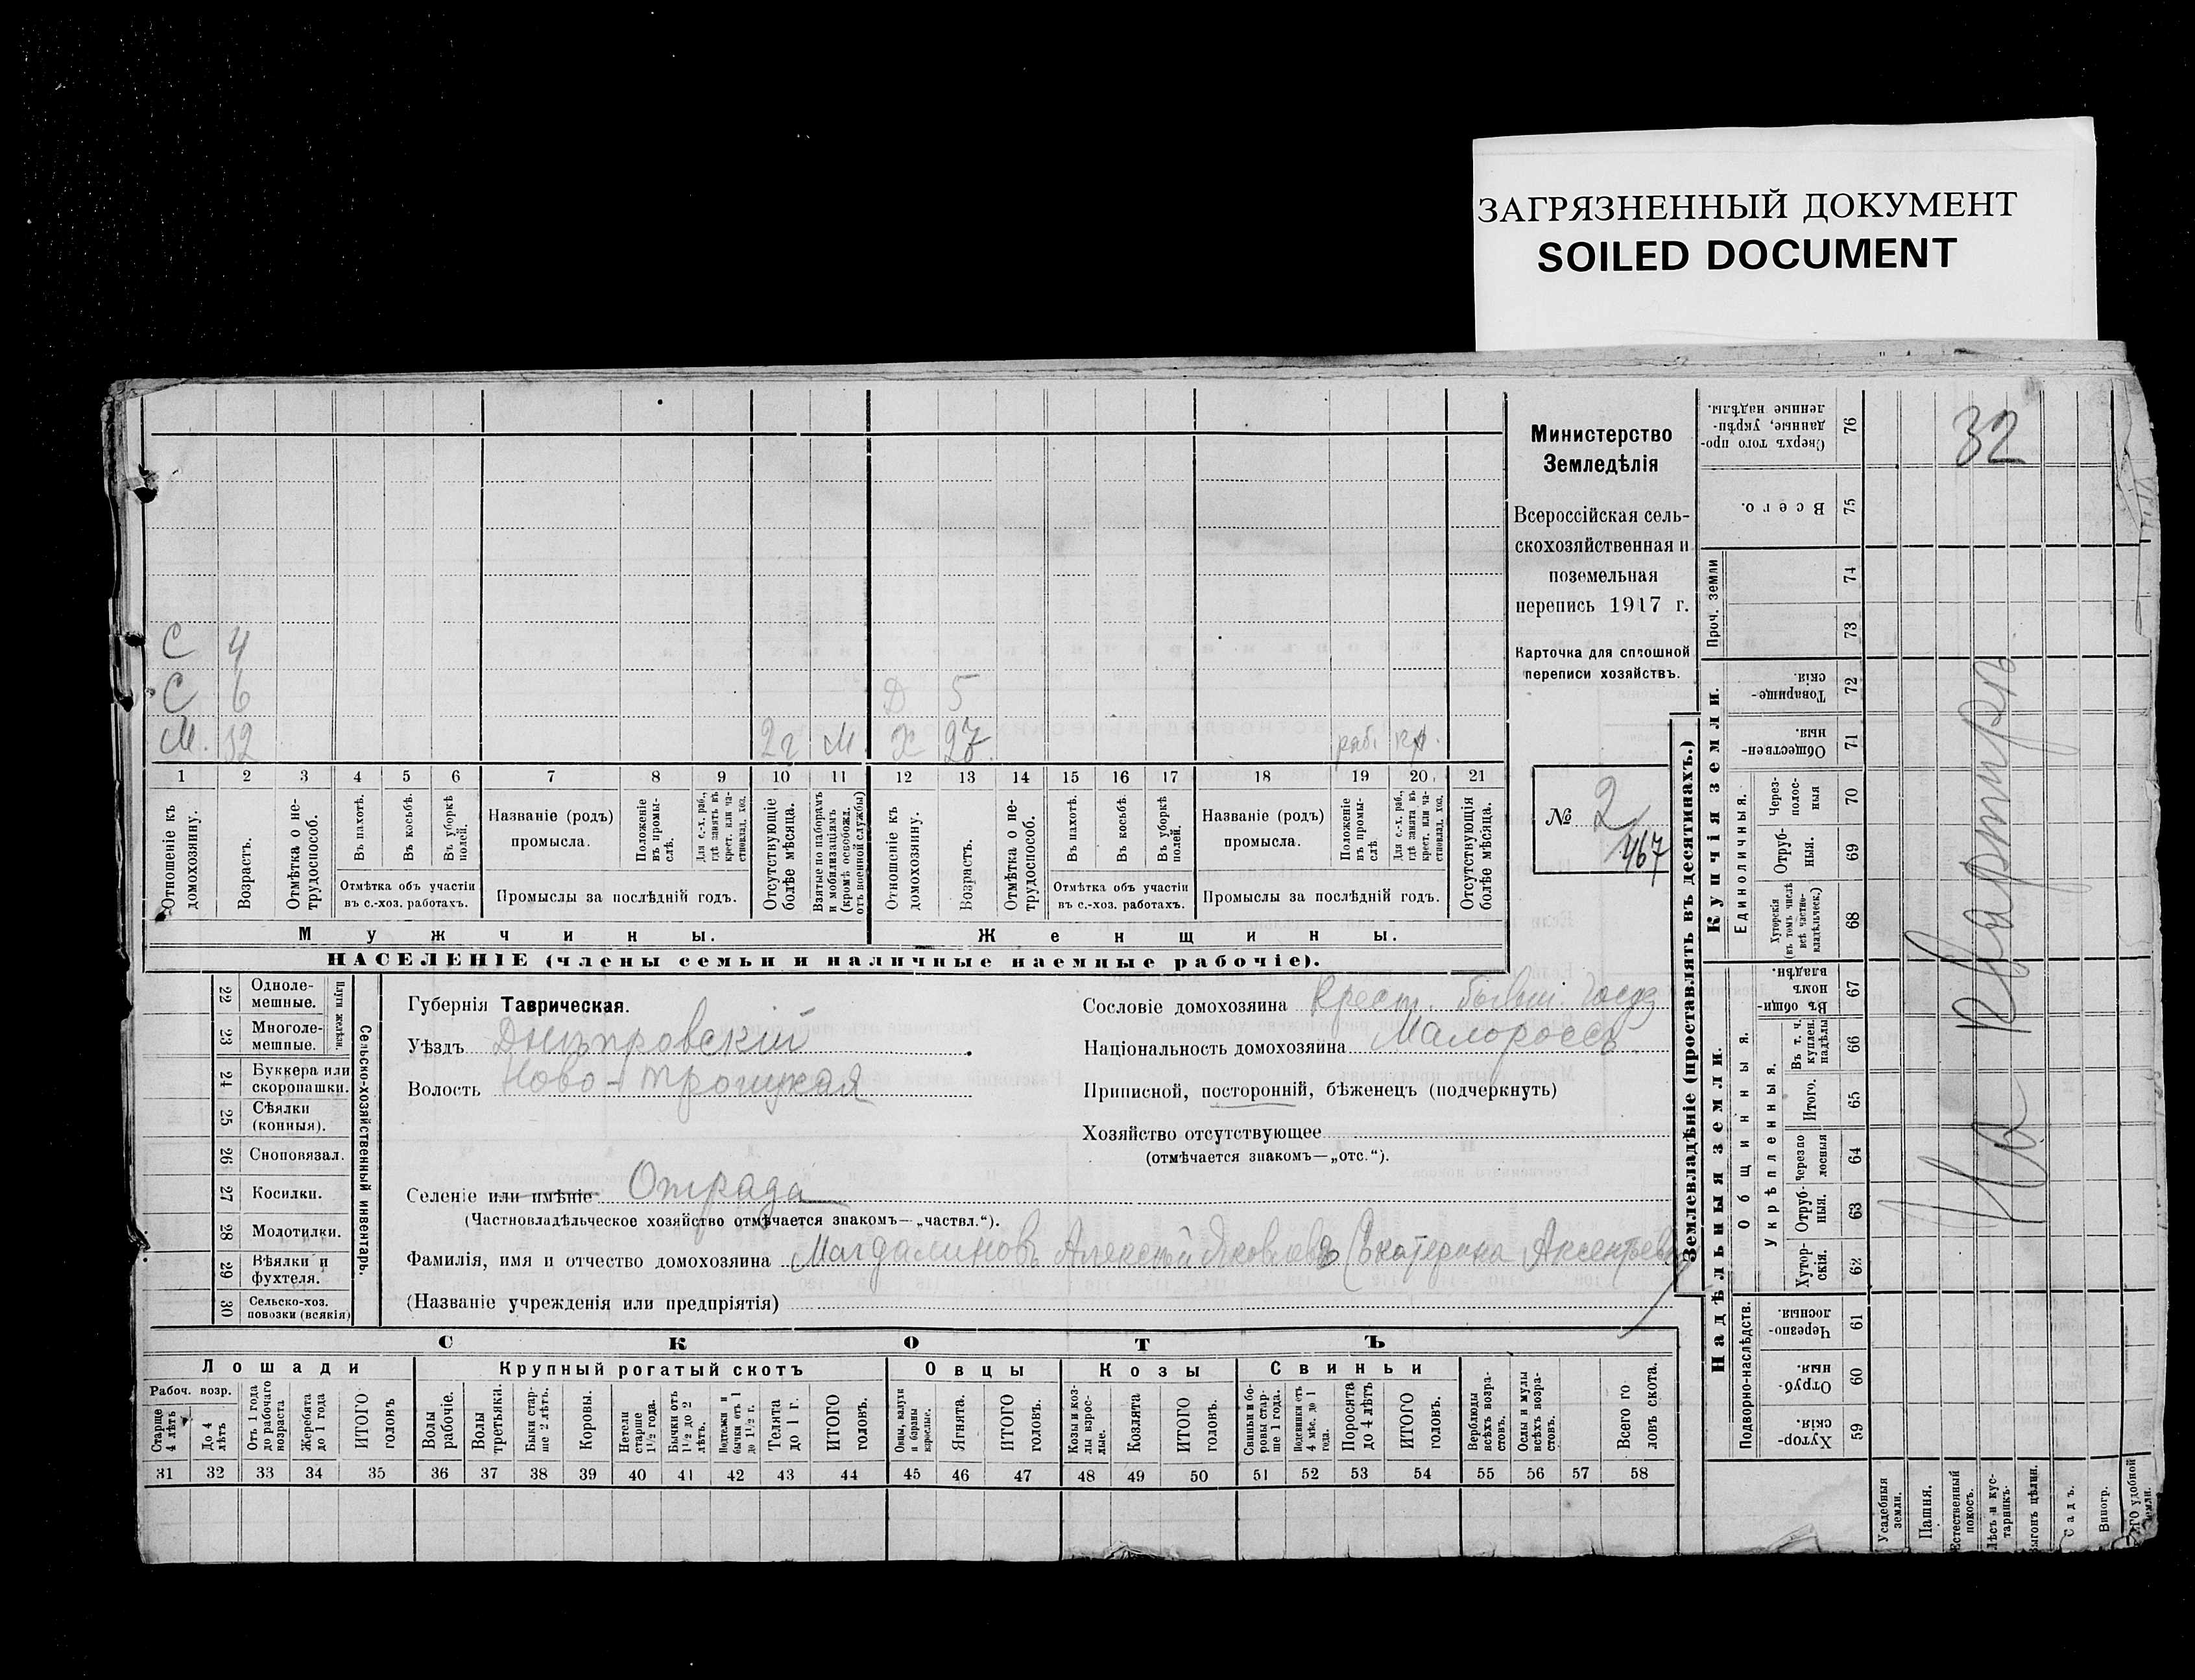 ЗАГРЯЗНЕННЫЙ ДОКУМЕНТ
SOILED DOCUMENT
С 4
С 6 Д 5
М. 32 2 г М. Ж 27 раб. кр.
1 2 3 4 5 6 7 8 9 10 11 12 13 14 15 16 17 18 19 20 21
Отношеніе къ домохозяину.
Возрастъ.
Отмѣтка о не-
трудоспособ.
Въ пахотѣ.
Въ косьбѣ.
Въ уборкѣ
полей.
Отмѣтка объ участіи
въ с.-хоз. работахъ.
Названіе (родъ)
промысла.
Положеніе
въ промы-
слѣ.
Для с.-х. раб.,
гдѣ занятъ въ
крест. или ча-
стновлад. хоз.
Промыслы за послѣдній годъ.
Отсутствующіе
болѣе мѣсяца.
Взятые по наборамъ
и мобилизаціямъ
(кромѣ освобожд.
отъ военной службы)
Отношеніе къ
домохозяину.
Возрастъ.
Отмѣтка о не-
трудоспособ.
Въ пахотѣ.
Въ косьбѣ.
Въ уборкѣ
полей.
Отмѣтка объ участіи
въ с.-хоз. работахъ.
Названіе (родъ)
промысла.
Положеніе
въ промы-
слѣ
Для с.-х. раб.,
гдѣ занята въ
крест. или ча-
стновлад. хоз.
Промыслы за послѣдній годъ.
Отсутствующія
болѣе мѣсяца.
Мужчины.
Женщины.
НАСЕЛЕНІЕ (члены семьи и наличные наемные рабочіе).
Министерство
Земледѣлія
Всероссійская сель-
скохозяйственная и
поземельная
перепись 1917 г.
Карточка для сплошной
переписи хозяйствъ.
№ 2
467
22 Одноле-
мешные.
23 Многоле-
мешные.
Плуги желѣзн.
24 Буккера или
скоропашки.
25 Сѣялки
(конныя).
26 Сноповязал.
27 Косилки.
28 Молотилки.
29 Вѣялки и
фухтеля.
30 Сельско-хоз.
повозки (всякія)
Сельско-хозяйственный инвентарь.
Губернія Таврическая.
Уѣздъ Днѣпровскій
Волость Ново-Троицкая
Селеніе или имѣніе Отрада
(Частновладѣльческое хозяйство отмѣчается знакомъ—„частвл.“).
Фамилія, имя и отчество домохозяина Магдалиновъ Алексѣй Яковлевъ (Екатерина Аксентьевна
(Названіе учрежденія или предпріятія)
Сословіе домохозяина Крест. бывш. Госуд
Національность домохозяина Малороссъ
Приписной, посторонній, бѣженецъ (подчеркнуть)
Хозяйство отсутствующее
(отмѣчается знакомъ—„отс.“).
СКОТЪ
Лошади
Крупный рогатый скотъ
Овцы
Козы
Свиньи
Рабоч. возр.
Старше
4 лѣтъ
До 4
лѣтъ
Отъ 1 года
до рабочаго
возраста
Жеребята
до 1 года
ИТОГО
головъ
Волы
рабочіе.
Волы
третьяки.
Быки стар-
ше 2 лѣтъ.
Коровы.
Нетели
старше
1½ года.
Бычки отъ
1½ до 2
лѣтъ.
Подтелки и
бычки отъ 1
до 1½ г.
Телята
до 1 г.
ИТОГО
головъ.
Овцы, валухи
и бараны
взрослые.
Ягнята.
ИТОГО
головъ.
Козы и коз-
лы взрос-
лые.
Козлята
ИТОГО
головъ.
Свиньи и бо-
ровы стар-
ше 1 года.
Подсвинки отъ
4 мѣс. до 1
года.
Поросята
до 4 лѣтъ
ИТОГО
головъ.
Верблюды
всѣхъ возра-
стовъ.
Ослы и мулы
всѣхъ возра-
стовъ.
Всего го
ловъ скота.
31 32 33 34 35 36 37 38 39 40 41 42 43 44 45 46 47 48 49 50 51 52 53 54 55 56 57 58
Землевладѣніе (проставлять въ десятинахъ.)
Надѣльныя земли.
Купчія земли.
Проч. земли
Подворно-наслѣдств.
Общинныя.
Укрѣпленныя.
Единоличныя.
Хутор-
скія.
59
Отруб-
ныя.
60
Черезпо-
лосныя
61
Хутор-
скія.
62
Отруб-
ныя.
63
Черезпо
лосныя
64
Итого.
65
Въ т. ч.
куплен.
надѣлы
66
Въ общин-
номъ
владѣн.
67
Хуторскія
(въ томъ числѣ
всѣ частно-
владѣльческ.)
68
Отруб-
ныя.
69
Через-
полос-
ныя
70
Обществен-
ныя.
71
Товарище-
скія.
72
73
74
Всего.
75
Сверхъ того про-
данные, укрѣп-
ленные надѣлы.
76
32
На квартирѣ
Усадебныя
земли.
Пашня.
Естественный
покосъ.
Лѣсъ и кус-
тарникъ.
Выгонъ цѣлин.
Садъ.
Виногр.
удобной
земли.